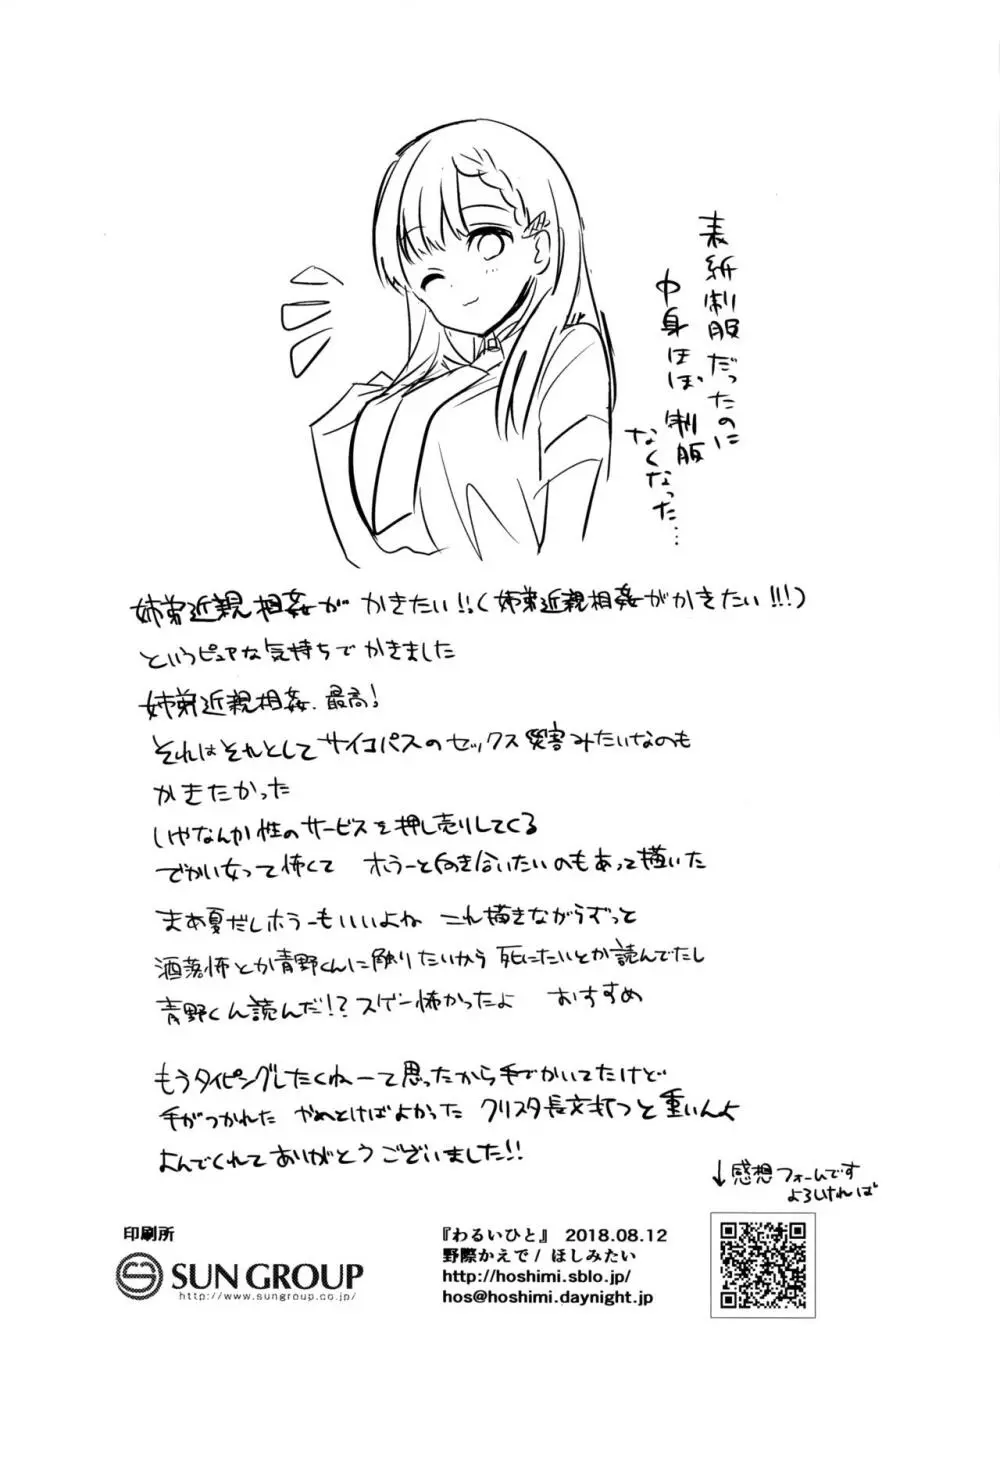 表紙制服だったのに
中身ほぼ制服
なくなった…
姉弟近親相姦が かきたい!!(姉弟近親相姦がかきたい!!!)
というピュアな気持ちで かきました
姉弟近親相姦、最高!
それはそれとして サイコパスのセックス災害みたいなのも
かきたかった
いやなんか性のサービスを押し売りしてくる
でかい女って怖くて ホラーと向き合いたいのもあって描いた
まあ夏だしホラーもいいよね これ描きながらずっと
洒落怖とか青野くんに触りたいから死にたいとか読んでたし
青野くん読んだ!?スゲー怖かったよ おすすめ
もうタイピングしたくねーって思ったから手でかいてたけど
手がつかれた やめとけばよかった クリスタ長文打つと重いんよ
よんでくれてありがとうございました!!
↓感想フォームです
よろしければ
印刷所
SUN GROUP
http://www.sungroup.co.jp/
『わるいひと』 2018.08.12
野際かえで/ ほしみたい
http://hoshimi.sblo.jp/
hos@hoshimi.daynight.jp